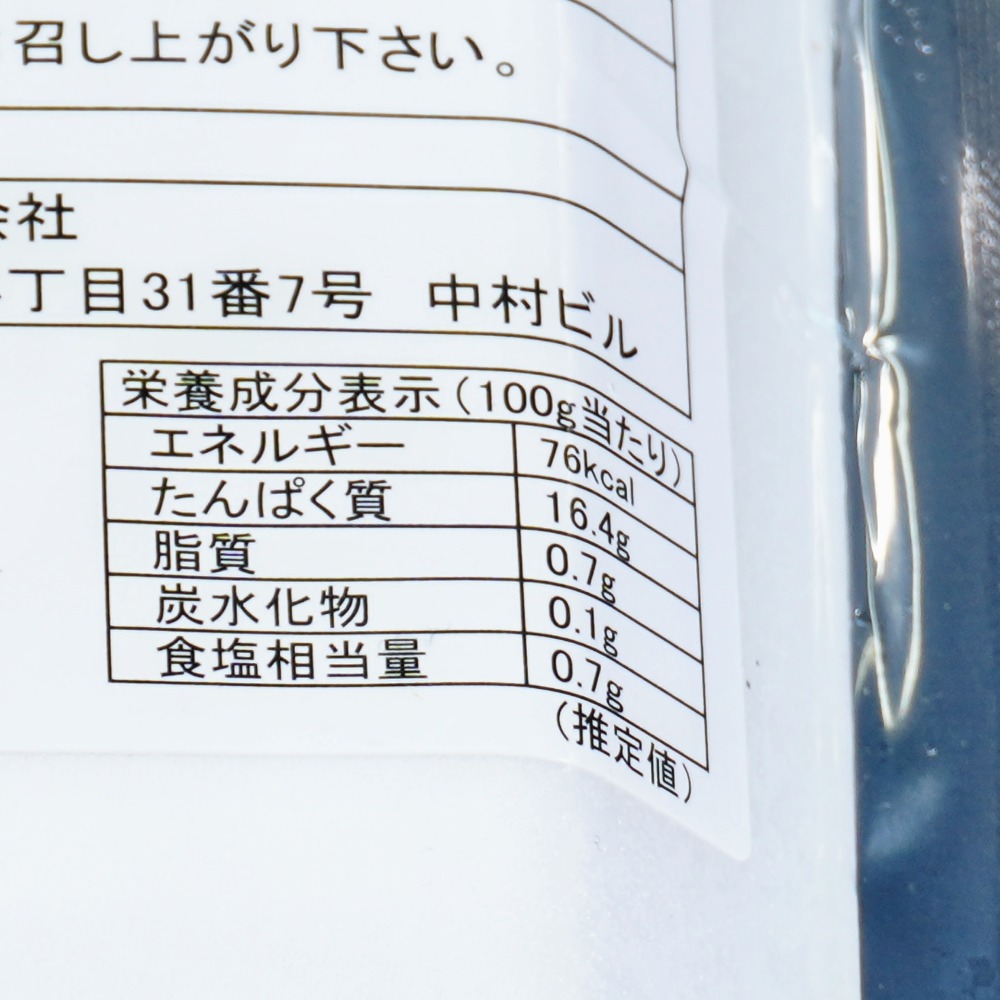 召し上がり下さい。
会社
丁目31番7号 中村ビル
栄養成分表示(100g当たり)
エネルギー 76kcal
たんぱく質 16.4g
脂質 0.7g
炭水化物 0.1g
食塩相当量 0.7g
(推定値)